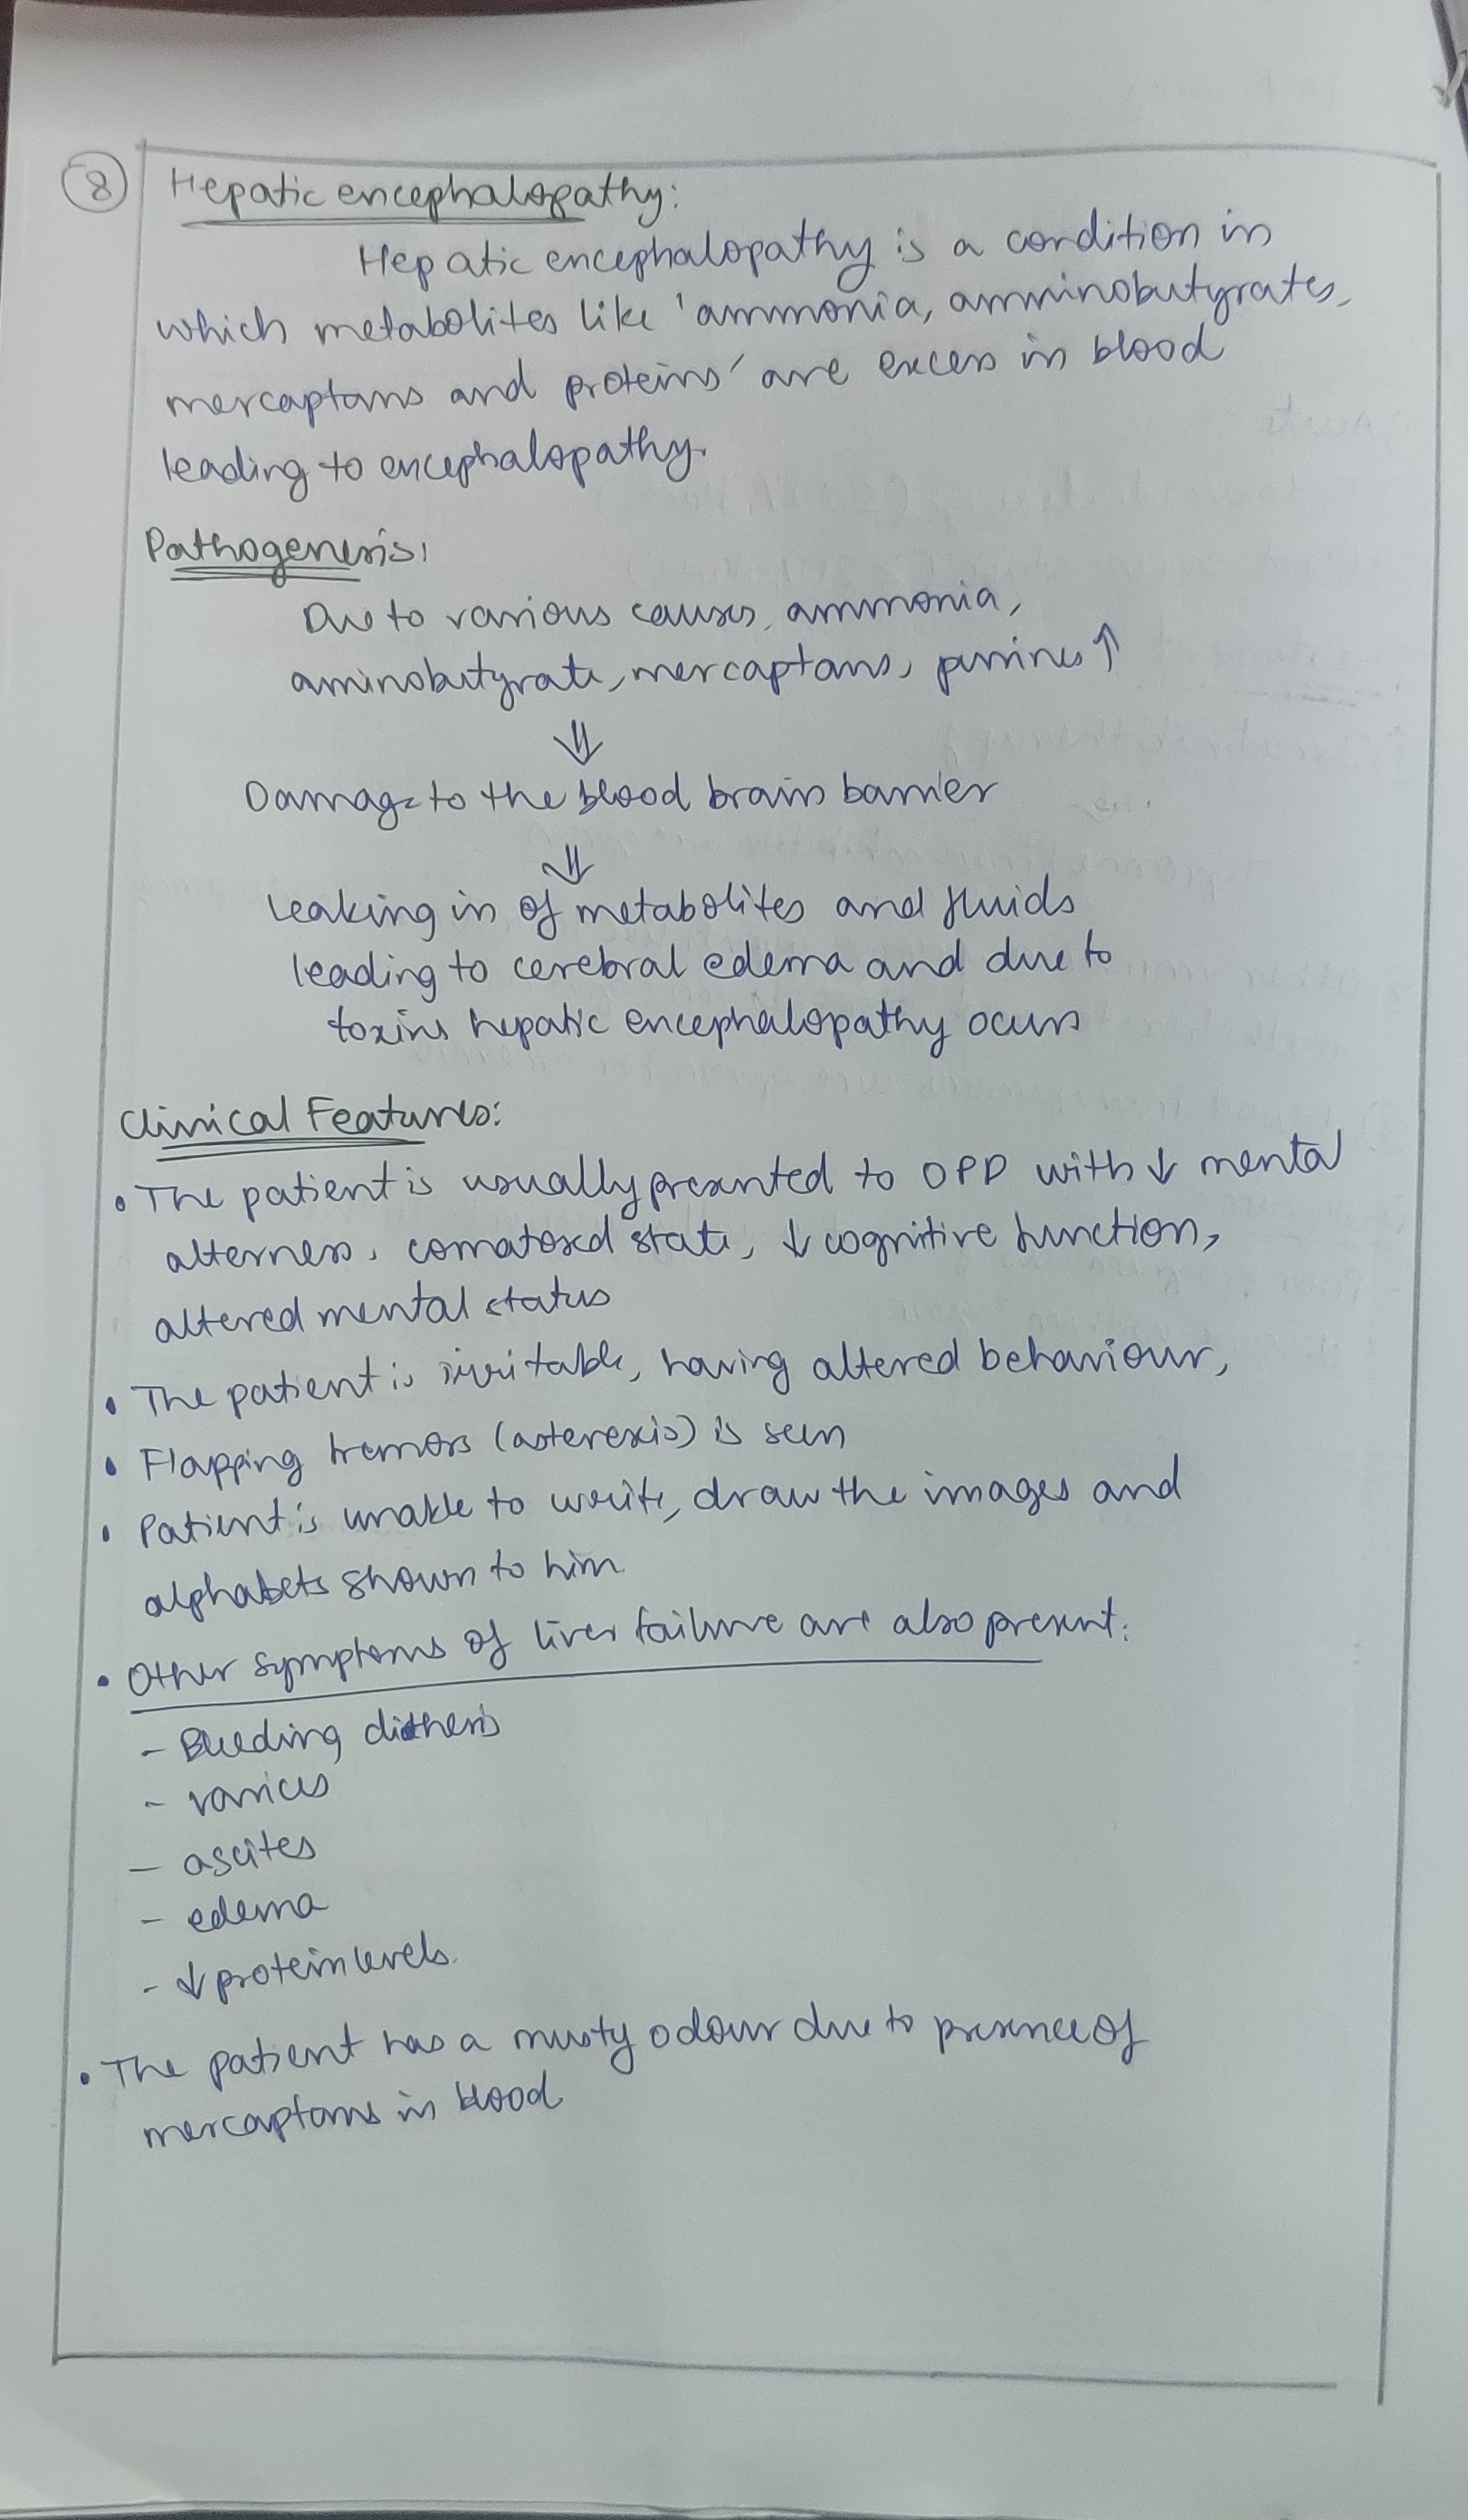 8 Hepatic encephalopathy:
Hepatic encephalopathy is a condition in
which metabolites like 'ammonia, amminobutyrates,
mercaptans and proteins' are excess in blood
leading to encephalopathy.
Pathogenesis:
Due to various causes, ammonia,
aminobutyrate, mercaptans, purines ↑
⇓
Damage to the blood brain barrier
⇓
Leaking in of metabolites and fluids
leading to cerebral edema and due to
toxins hepatic encephalopathy ocurs
Clinical Features:
• The patient is usually presented to OPD with ↓ mental
alterness, comatosed state, ↓ cognitive function,
altered mental status
• The patient is irritable, having altered behaviour,
• Flapping tremors (asterexis) is seen
• Patient is unable to write, draw the images and
alphabets shown to him
• Other symptoms of liver failure are also present:
- Bleeding diathesis
- varices
- ascites
- edema
- ↓ protein levels.
• The patient has a musty odour due to presence of
mercaptans in blood